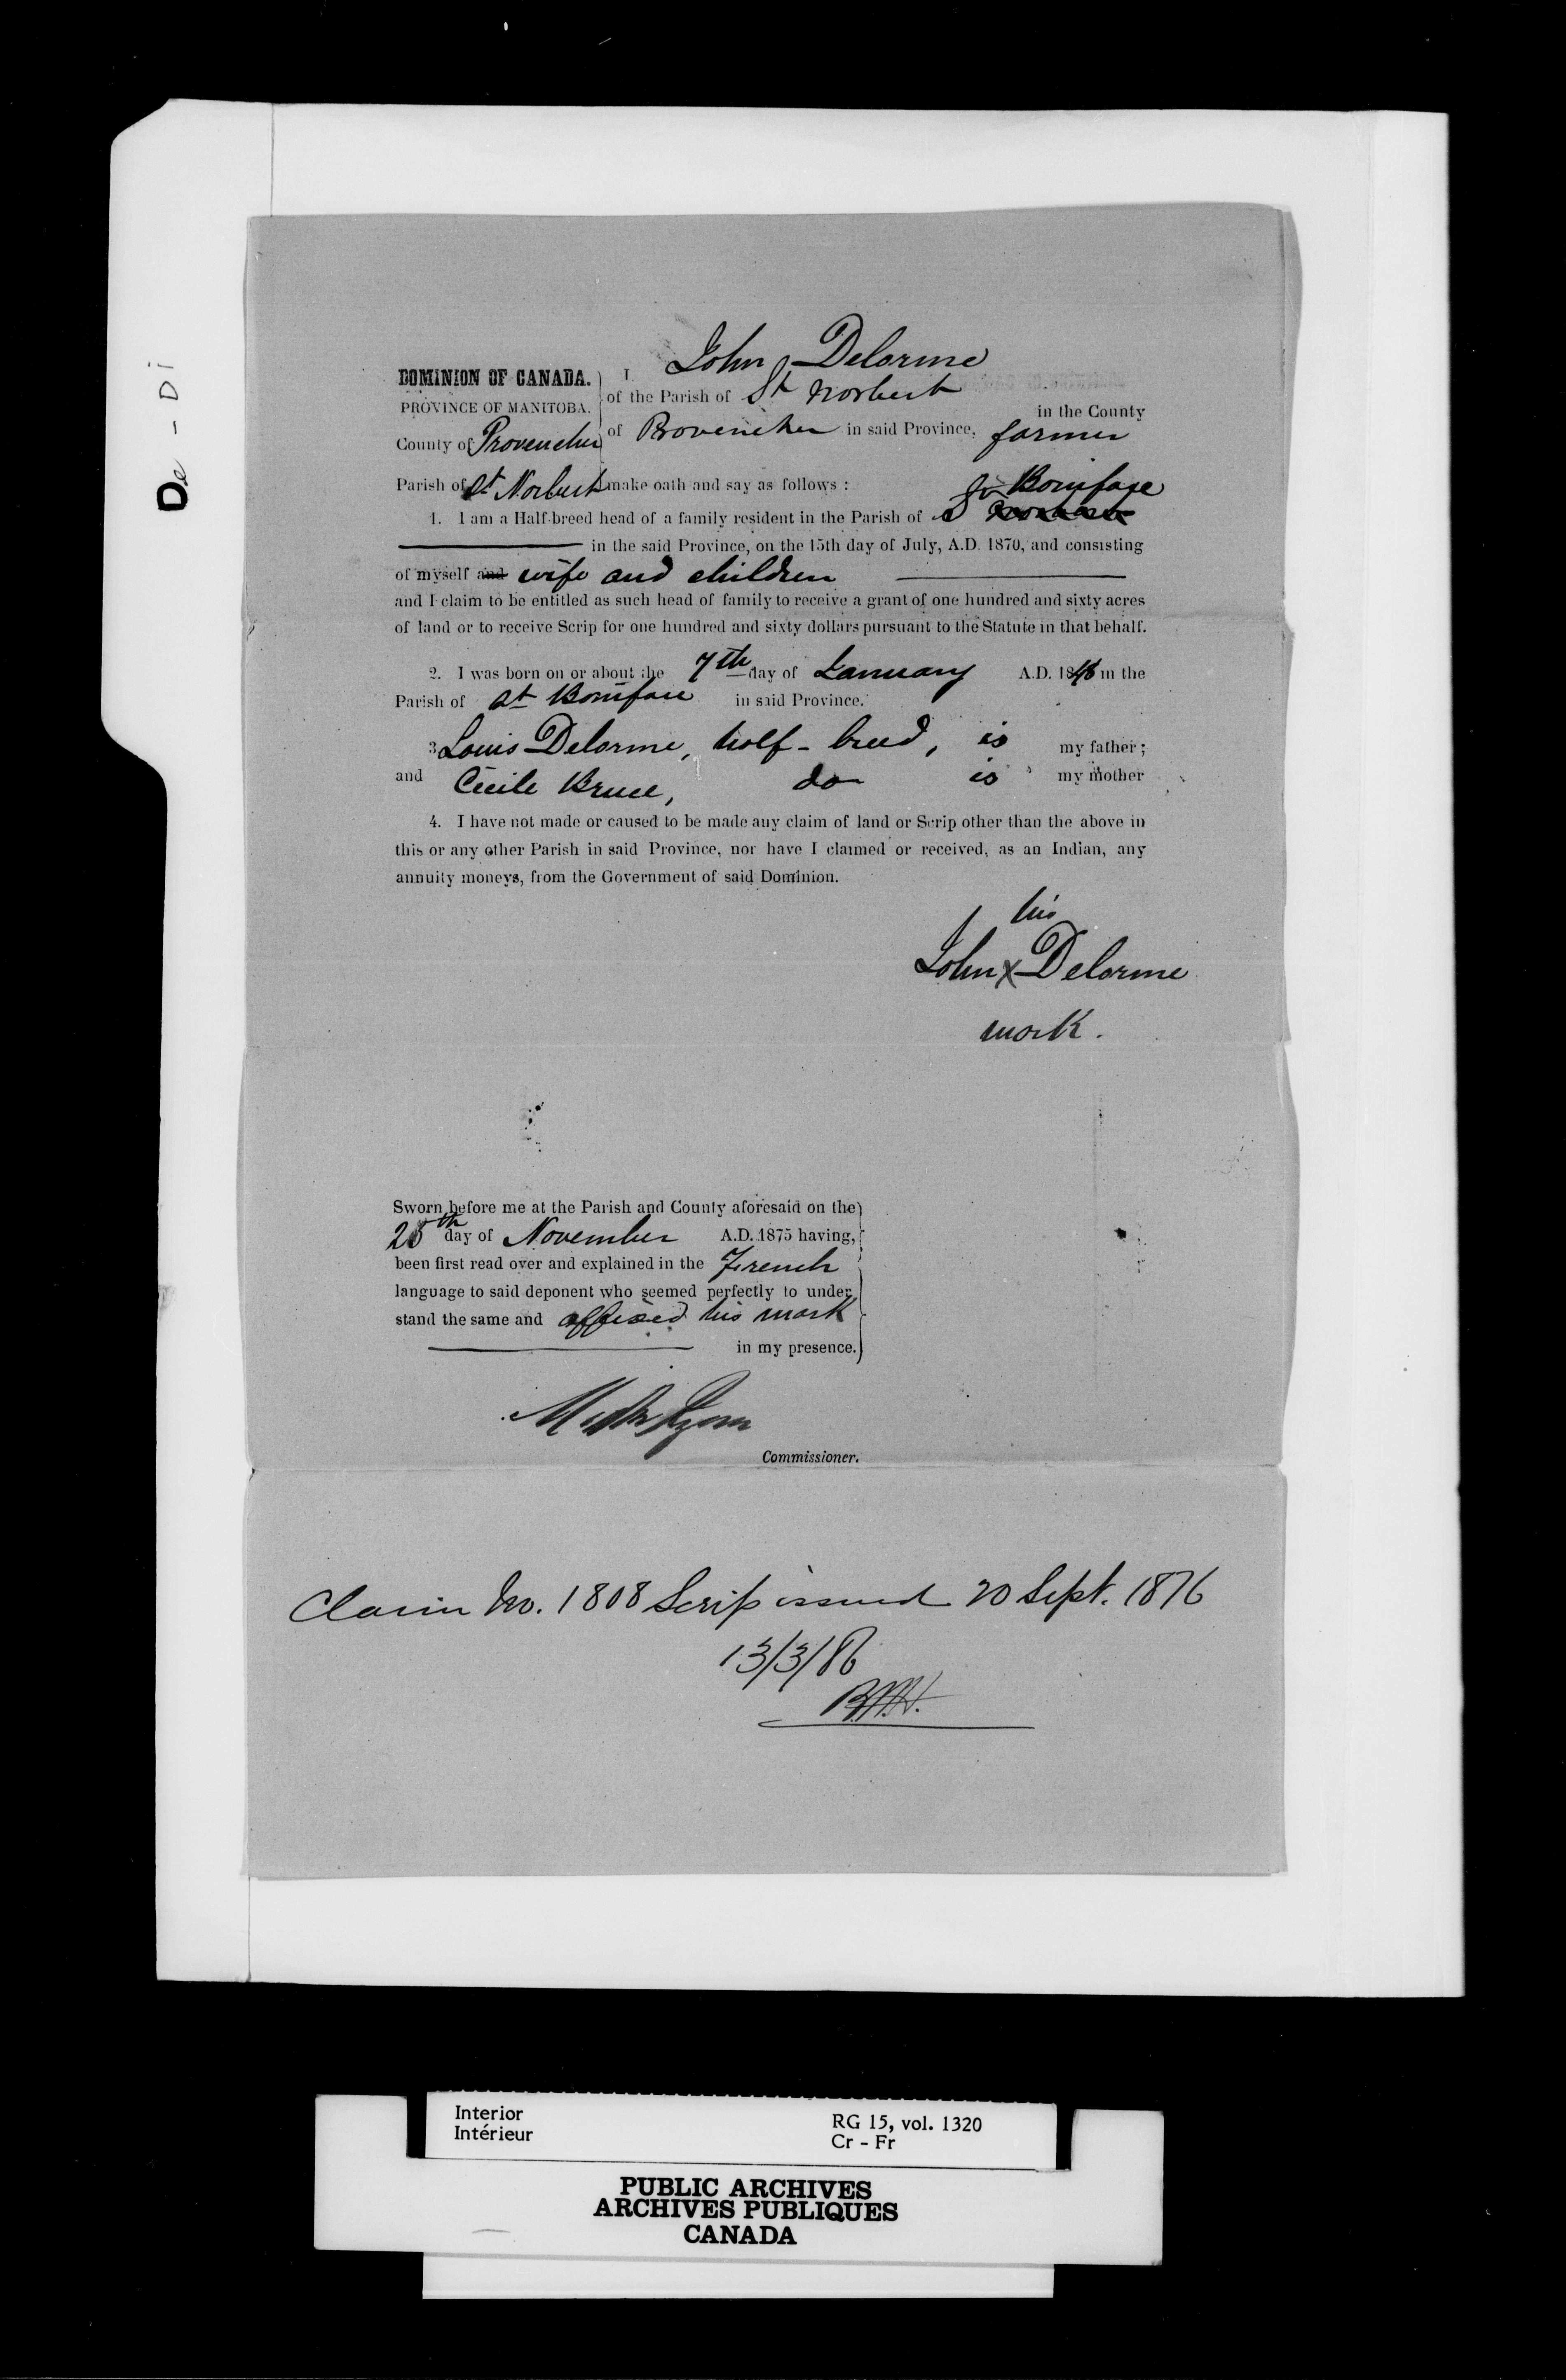 De - Di
John Delorme
DOMINION OF CANADA. I
PROVINCE OF MANITOBA. of the Parish of St Norbert in the County
County of Provencher of Provencher in said Province, farmer
Parish of St Norbert make oath and say as follows :
St Boniface
1. I am a Half-breed head of a family resident in the Parish of St
in the said Province, on the 15th day of July, A.D. 1870, and consisting
of myself and wife and children
and I claim to be entitled as such head of family to receive a grant of one hundred and sixty acres
of land or to receive Scrip for one hundred and sixty dollars pursuant to the Statute in that behalf.
2. I was born on or about the 7th day of January A.D. 1846 in the
Parish of St Boniface in said Province.
3 Louis Delorme, half-breed, is my father ;
and Cécile Bruce, do is my mother
4. I have not made or caused to be made any claim of land or Scrip other than the above in
this or any other Parish in said Province, nor have I claimed or received, as an Indian, any
annuity moneys, from the Government of said Dominion.
his
John X Delorme
mark.
Sworn before me at the Parish and County aforesaid on the
day of November A.D. 1875 having,
been first read over and explained in the French
language to said deponent who seemed perfectly to under
stand the same and affixed his mark
in my presence.
Commissioner.
Claim No. 1808 Scrip issued 20 Sept. 1876
13/3/86
Interior RG 15, vol. 1320
Intérieur Cr - Fr
PUBLIC ARCHIVES
ARCHIVES PUBLIQUES
CANADA